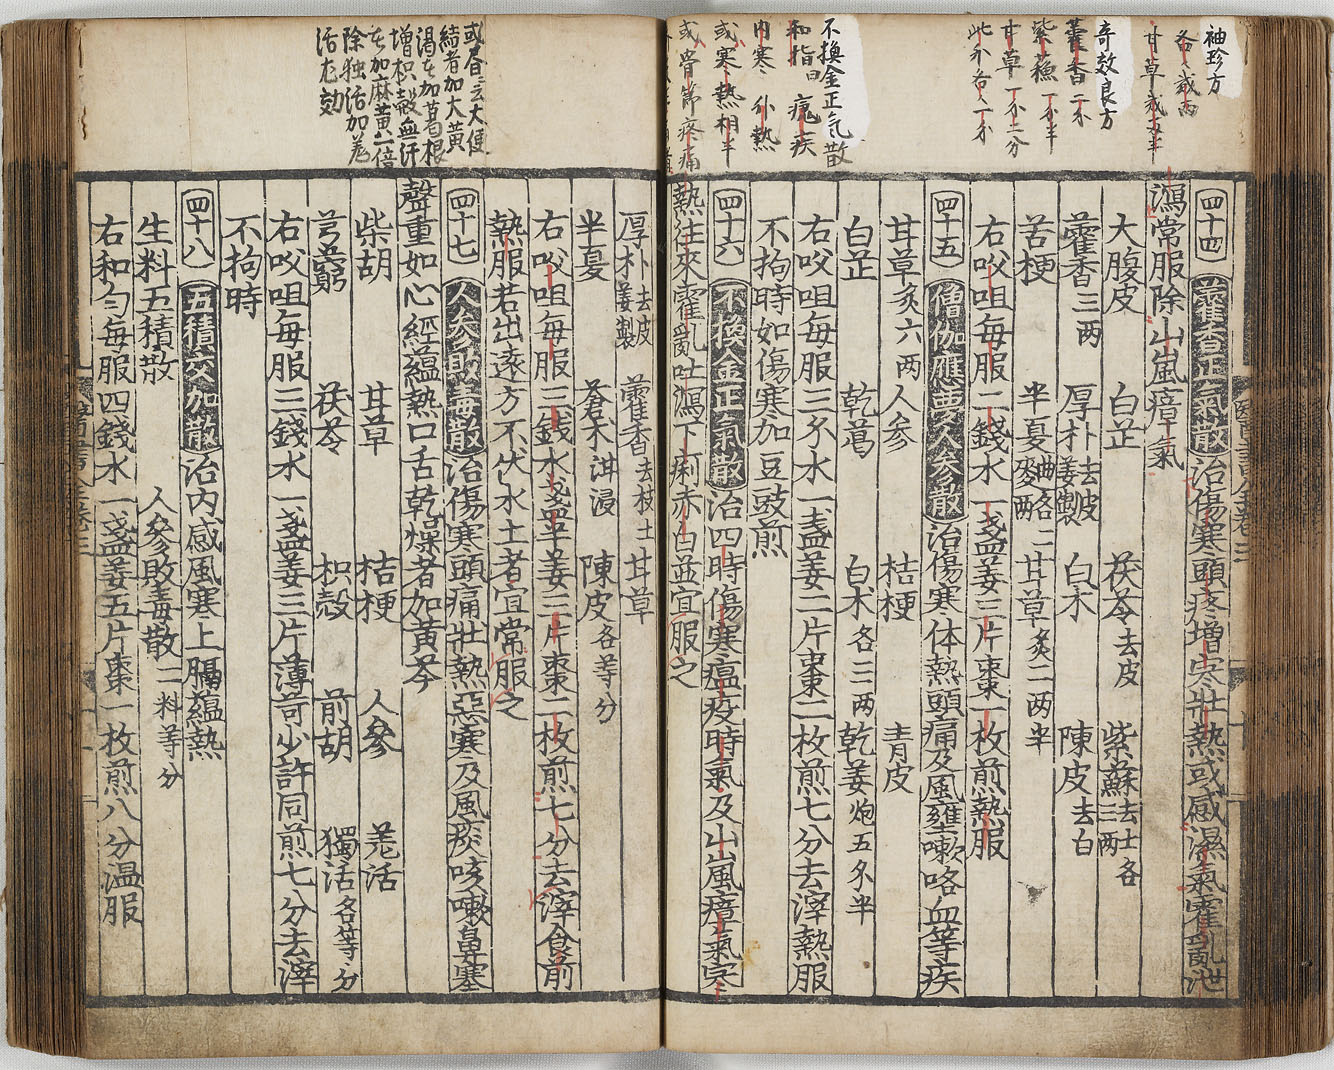 袖珍方
各二戔両
甘草戔五半
奇效良方
藿香二个
紫蘓一个半
甘草一个二分
此外各一个
不換金正气散
和指曰瘧疾
内寒外熱
或寒熱相半
或骨節疼痛
四十四 藿香正氣散 治傷寒頭疼增寒壯熱或感濕氣霍亂泄
瀉常服除山嵐瘴氣
大腹皮 白芷 茯苓去皮 紫蘇去土各三両
藿香三両 厚朴去皮姜製 白术 陳皮去白
苦梗 半夏曲各二両 甘草炙二両半
右㕮咀每服二錢水一盞姜三片棗一枚煎熱服
四十五 僧伽應夢人參散 治傷寒体熱頭痛及風壅嗽咯血等疾
甘草炙六両 人參 桔梗 青皮
白芷 乾葛 白术各三両 乾姜炮五分半
右㕮咀每服三分水一盞姜二片棗二枚煎七分去滓熱服
不拘時如傷寒加豆豉煎
四十六 不換金正氣散 治四時傷寒瘟疫時氣及山嵐瘴氣寒
熱往來霍亂吐瀉下痢赤白並宜服之
或昏云大便
結者加大黃
渴者加葛根
增枳殼無汗
者加麻黄一倍
除独活加羗
活尤効
厚朴去皮姜製 藿香去枝土 甘草
半夏 蒼术泔浸 陳皮各等分
右㕮咀每服三錢水一盞半姜二片棗二枚煎七分去滓食前
熱服若出遠方不伏水土者宜常服之
四十七 人參敗毒散 治傷寒頭痛壯熱惡寒及風痰咳嗽鼻塞
聲重如心經蘊熱口舌乾燥者加黃芩
柴胡 甘草 桔梗 人參 羗活
芎藭 茯苓 枳殼 前胡 獨活各等分
右㕮咀每服三錢水一盞姜三片薄苛少許同煎七分去滓
不拘時
四十八 五積交加散 治内感風寒上膈蘊熱
生料五積散 人參敗毒散二料等分
右和勻每服四錢水一盞姜五片棗一枚煎八分温服